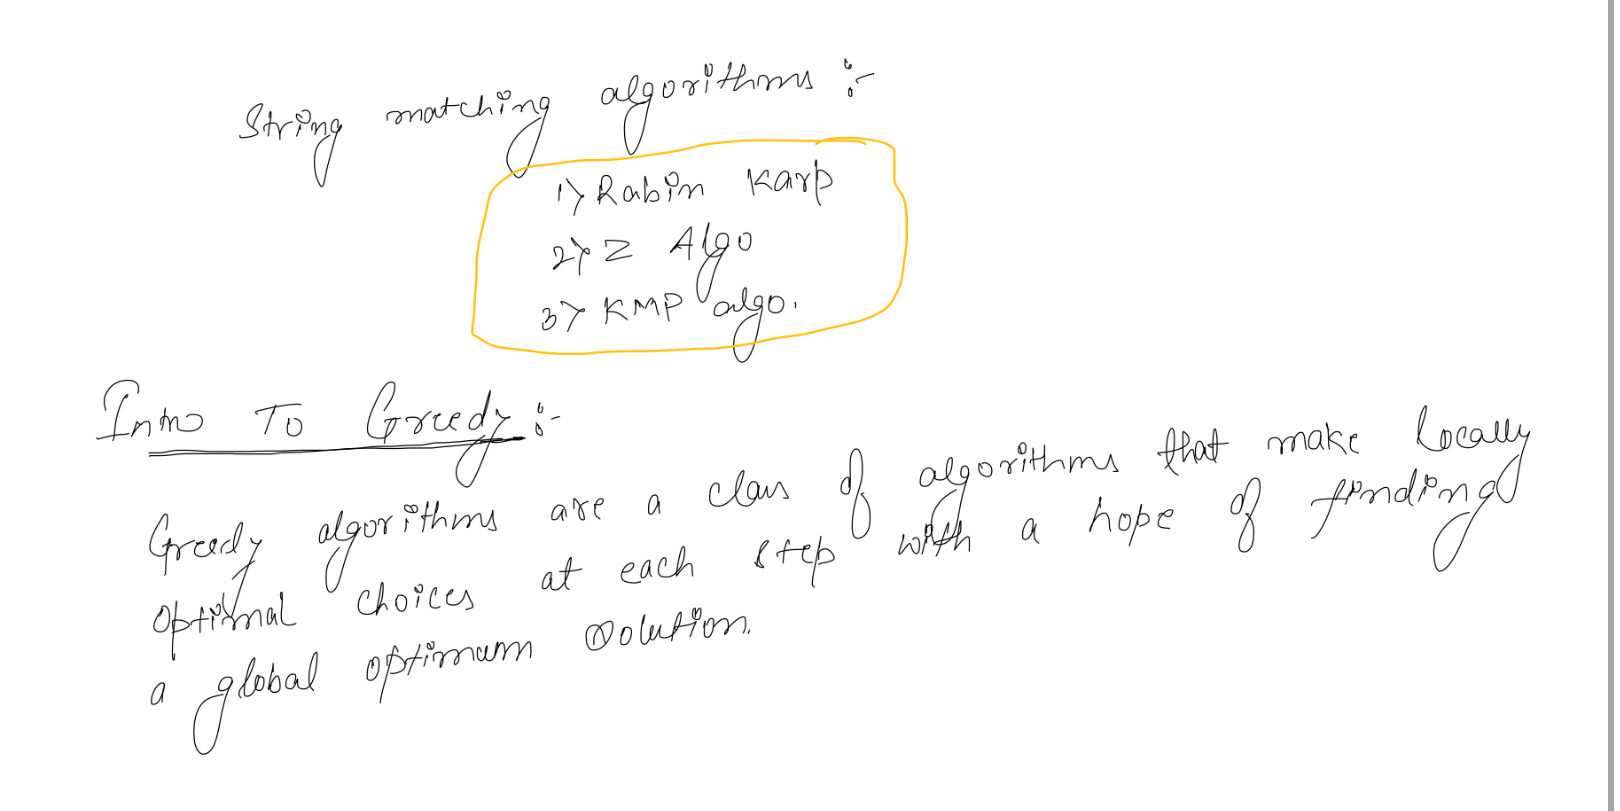 String matching algorithms :-
1) Rabin Karp
2) Z Algo
3) KMP algo.
Intro To Greedy :-
Greedy algorithms are a class of algorithms that make locally
optimal choices at each step with a hope of finding
a global optimum solution.